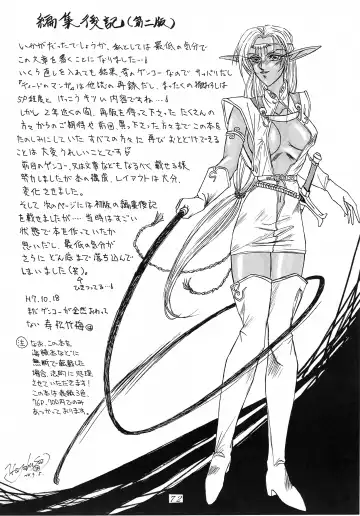 編集後記(第二版)
いかがだったでしょうか、私としては最低の気分で
この文章を書くことになりました…。
いくら直しを入れても結果、昔のゲンコーなのでサッパリだし
「ディードのマンガ」は他誌の再録だし、まったくの描おろしは
5P程度と、けっこうキツい内容ですね…。
しかし2年近くの間、再版を待って下さったたくさんの
方々からのご期待や前回買って下さった方までこの本を
たのしみにしていたすべての方々と再びおとどけできる
ことは大変うれしいことです
前回のゲンコー、又は文章などもなるべく載せる様
努力しましたが本の構成、レイアウトは大分、
変化させました。
そして次のページには初版の編集後記
を載せましたが…当時はすごい
状態で本を作っていたか
思いだし、最低の気分が
さらにどん底まで落ち込んで
しまいました(笑)。
ひきつってる…
H7.10.18
まだゲンコーが全然あわって
ない 寿松竹梅
注 なお、この本を
海賊本などに
無断で転載した
場合、法的に処理
させていただきます!
この本は表紙3色、
76P、700円でのみ
あつかっております。
79